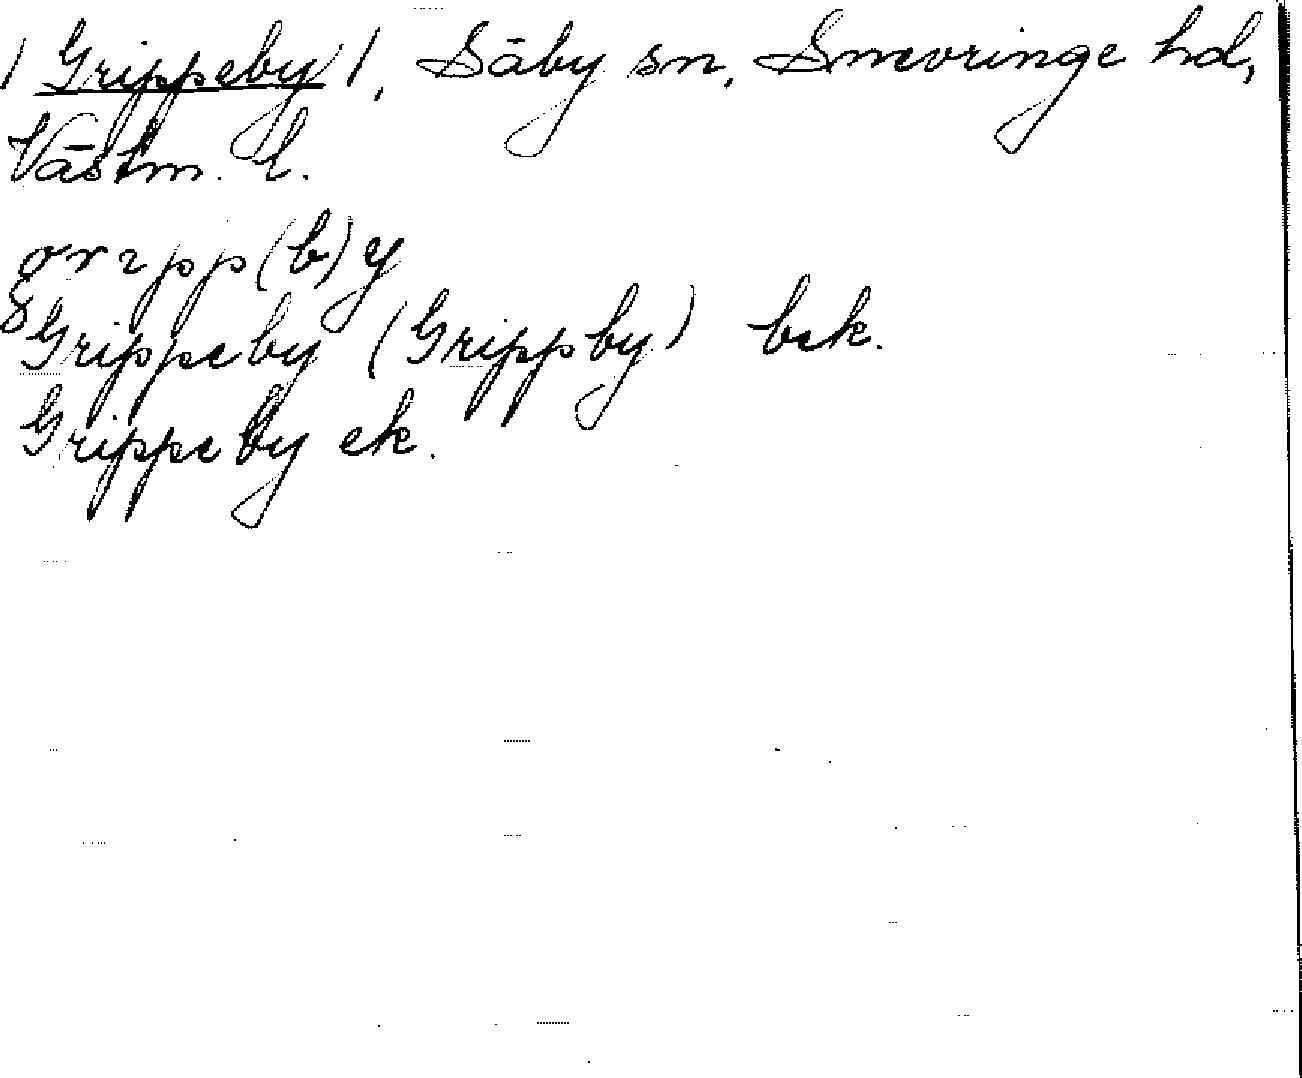 / Grippeby /, Säby sn, Snevringe hd,
Västm. l.
grɩpp(b)y
Grippeby (Grippby) bek.
Grippeby ek.